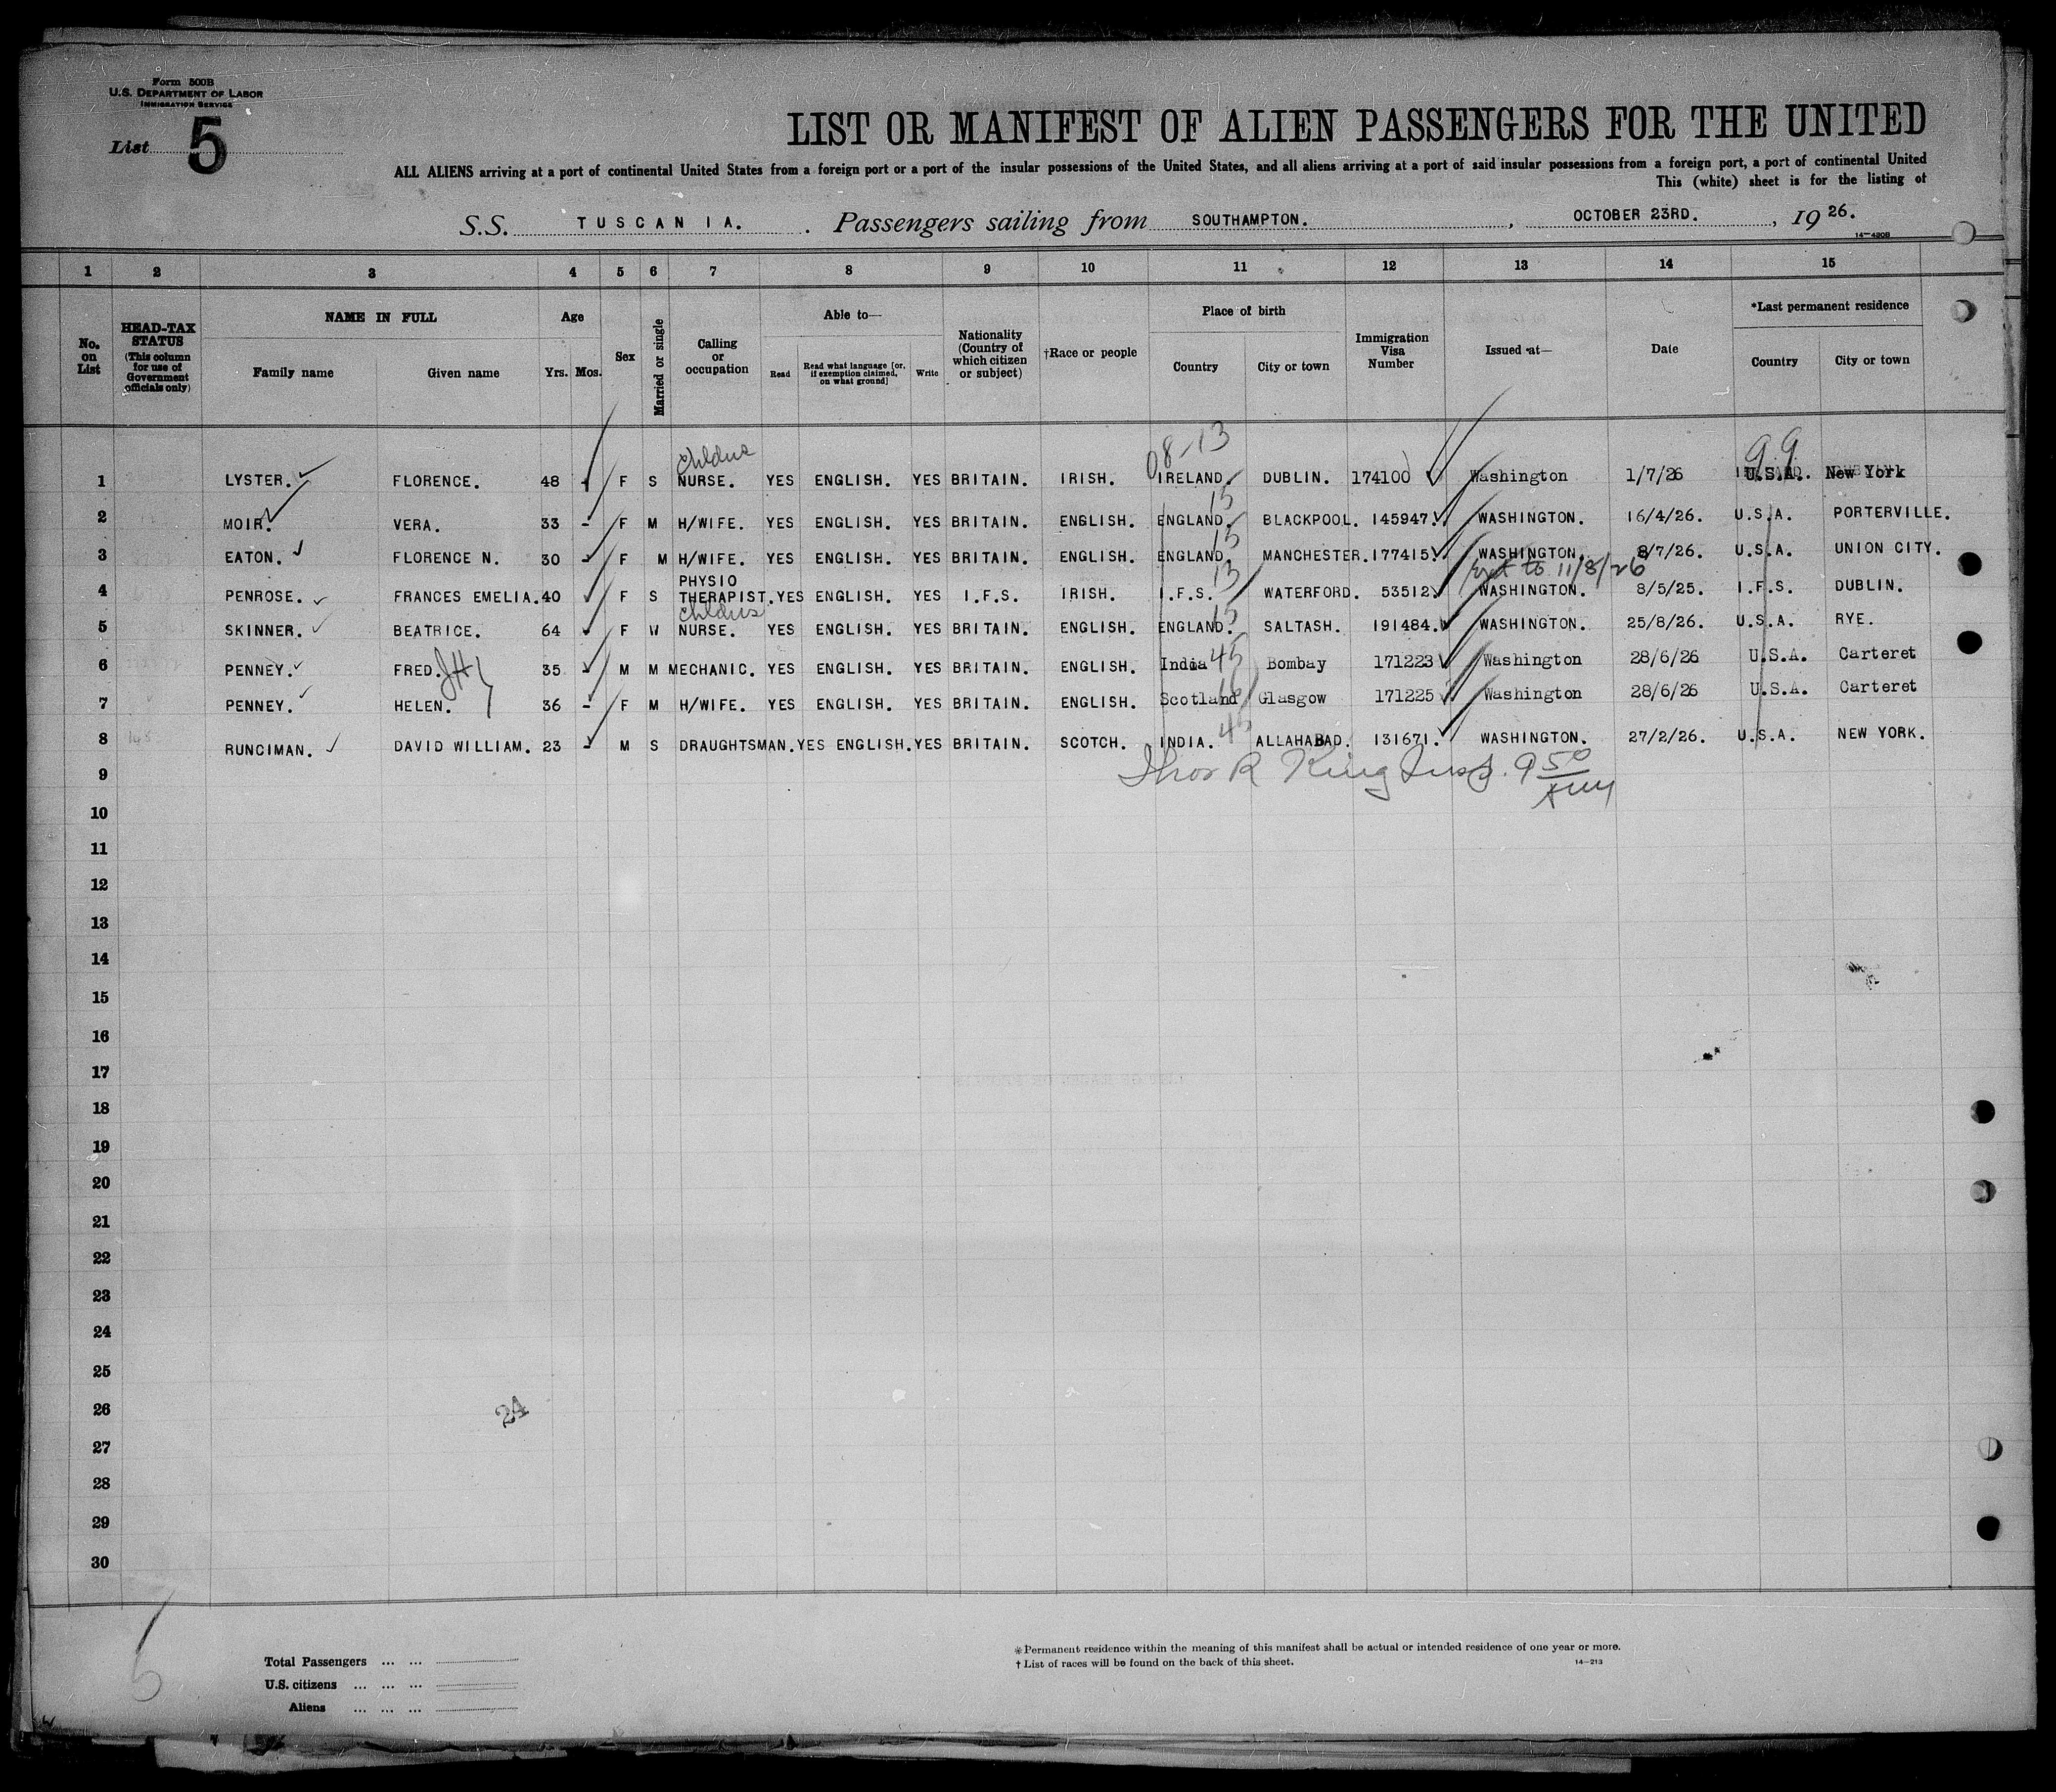 Form 500B
U.S. DEPARTMENT OF LABOR
IMMIGRATION SERVICE
List 5
LIST OR MANIFEST OF ALIEN PASSENGERS FOR THE UNITED
ALL ALIENS arriving at a port of continental United States from a foreign port or a port of the insular possessions of the United States, and all aliens arriving at a port of said insular possessions from a foreign port, a port of continental United
This (white) sheet is for the listing of
S.S. TUSCANIA. Passengers sailing from SOUTHAMPTON. , OCTOBER 23RD. , 19 26.
14-420B
1 2 3 4 5 6 7 8 9 10 11 12 13 14 15
No. on List
HEAD-TAX STATUS (This column for use of Government officials only)
NAME IN FULL
Family name Given name
Age
Yrs. Mos.
Sex
Married or single
Calling or occupation
Able to—
Read
Read what language [or, if exemption claimed, on what ground]
Write
Nationality (Country of which citizen or subject)
†Race or people
Place of birth
Country City or town
Immigration Visa Number
Issued at—
Date
*Last permanent residence
Country City or town
08-13 99
1 LYSTER. FLORENCE. 48 F S NURSE. YES ENGLISH. YES BRITAIN. IRISH. IRELAND. DUBLIN. 174100 Washington 1/7/26 U.S.A. New York
15
2 MOIR. VERA. 33 - F M H/WIFE. YES ENGLISH. YES BRITAIN. ENGLISH. ENGLAND. BLACKPOOL. 145947. WASHINGTON. 16/4/26. U.S.A. PORTERVILLE.
15
3 EATON. FLORENCE N. 30 - F M H/WIFE. YES ENGLISH. YES BRITAIN. ENGLISH. ENGLAND. MANCHESTER. 177415. WASHINGTON. 8/7/26. U.S.A. UNION CITY.
13 to 11/8/26
4 PENROSE. FRANCES EMELIA. 40 F S PHYSIO THERAPIST. YES ENGLISH. YES I.F.S. IRISH. I.F.S. WATERFORD. 53512. WASHINGTON. 8/5/25. I.F.S. DUBLIN.
15
5 SKINNER. BEATRICE. 64 - F W NURSE. YES ENGLISH. YES BRITAIN. ENGLISH. ENGLAND. SALTASH. 191484. WASHINGTON. 25/8/26. U.S.A. RYE.
45
6 PENNEY. FRED. 35 - M M MECHANIC. YES ENGLISH. YES BRITAIN. ENGLISH. India Bombay 171223 Washington 28/6/26 U.S.A. Carteret
7 PENNEY. HELEN. 36 - F M H/WIFE. YES ENGLISH. YES BRITAIN. ENGLISH. Scotland Glasgow 171225 Washington 28/6/26 U.S.A. Carteret
45
8 RUNCIMAN. DAVID WILLIAM. 23 - M S DRAUGHTSMAN. YES ENGLISH. YES BRITAIN. SCOTCH. INDIA. ALLAHABAD. 131671. WASHINGTON. 27/2/26. U.S.A. NEW YORK.
9 R King Insp. 9 50
10
11
12
13
14
15
16
17
18
19
20
21
22
23
24
25
26
24
27
28
29
30
Total Passengers ... ...
U.S. citizens ... ... ...
Aliens ... ... ...
*Permanent residence within the meaning of this manifest shall be actual or intended residence of one year or more.
†List of races will be found on the back of this sheet.
14-213